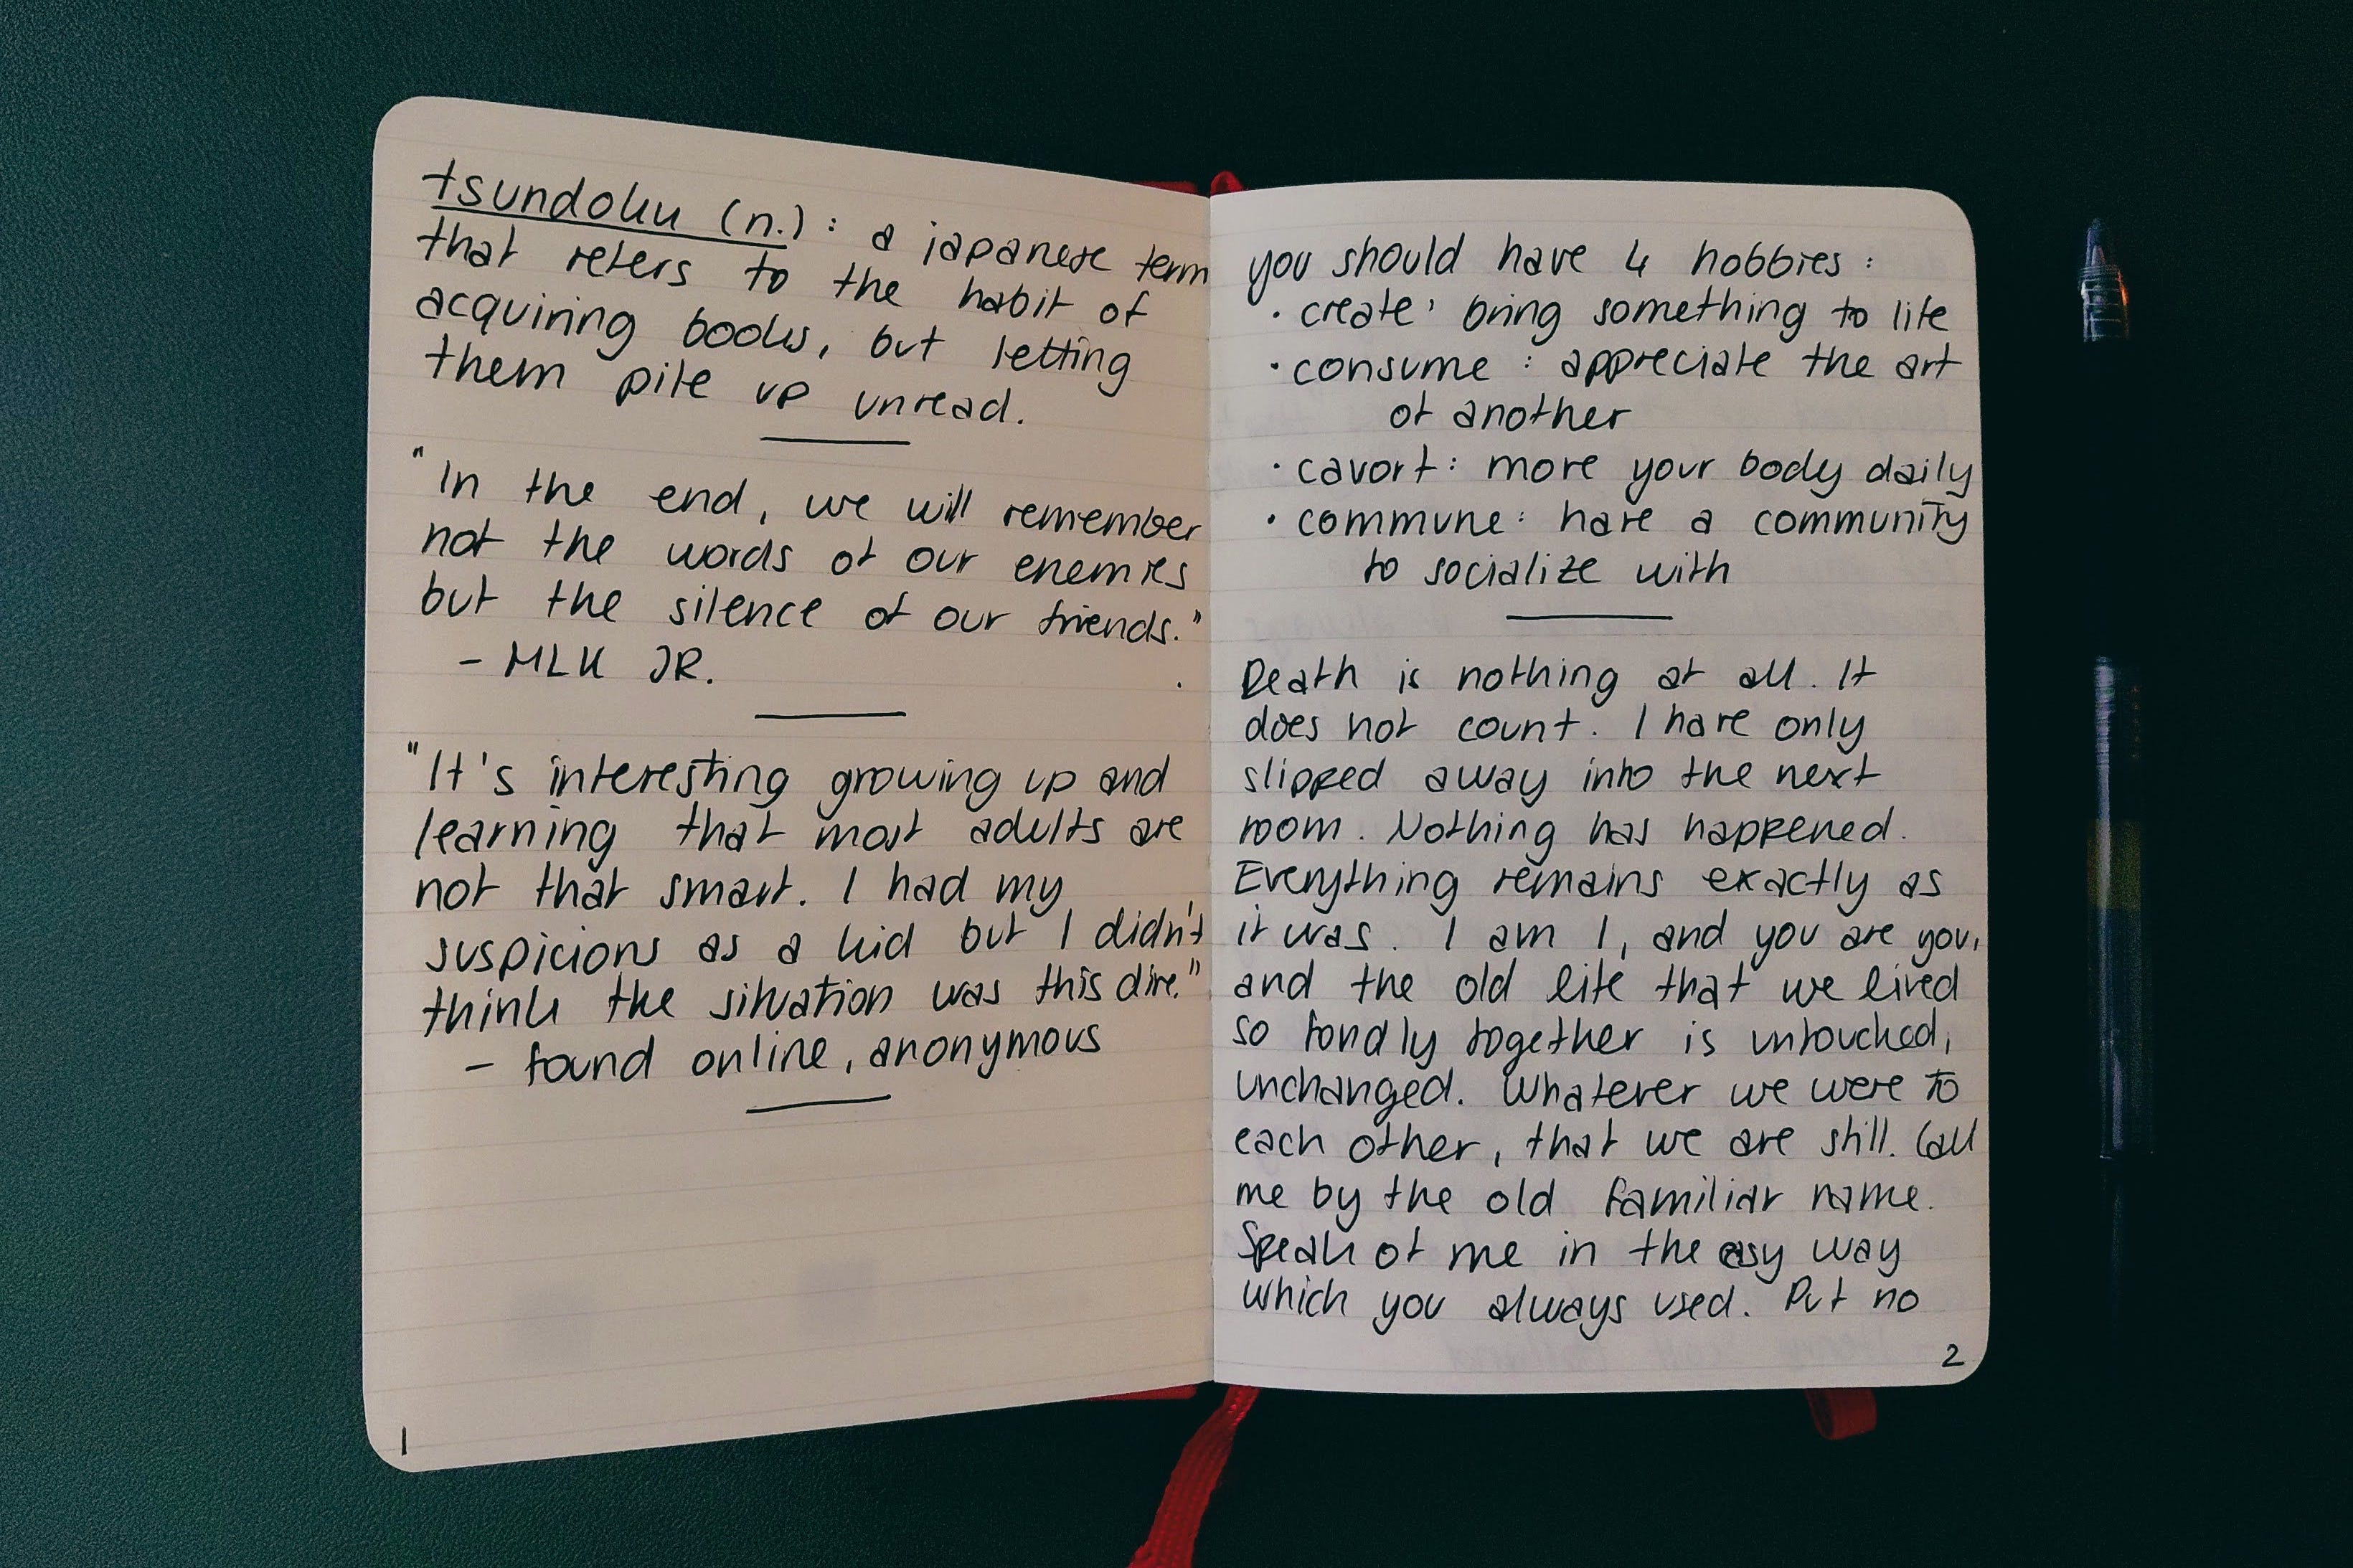 tsundoku (n.): a japanese term
that refers to the habit of
acquiring books, but letting
them pile up unread.
"In the end, we will remember
not the words of our enemies
but the silence of our friends."
- MLK JR.
"It's interesting growing up and
learning that most adults are
not that smart. I had my
suspicions as a kid but I didn't
think the situation was this dire."
- found online, anonymous
1
you should have 4 hobbies:
· create: bring something to life
· consume: appreciate the art
of another
· cavort: move your body daily
· commune: have a community
to socialize with
Death is nothing at all. It
does not count. I have only
slipped away into the next
room. Nothing has happened.
Everything remains exactly as
it was. I am I, and you are you,
and the old life that we lived
so fondly together is untouched,
unchanged. Whatever we were to
each other, that we are still. Call
me by the old familiar name.
Speak of me in the easy way
which you always used. Put no
2